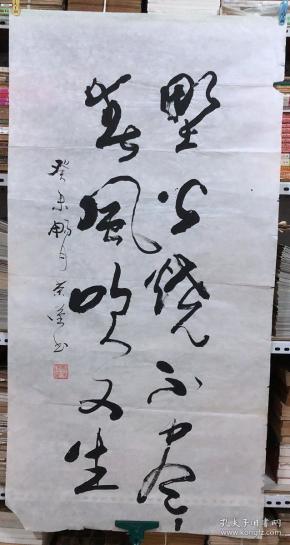 野火烧不尽
春风吹又生
癸未
书
孔夫子旧书网
www.kongfz.com